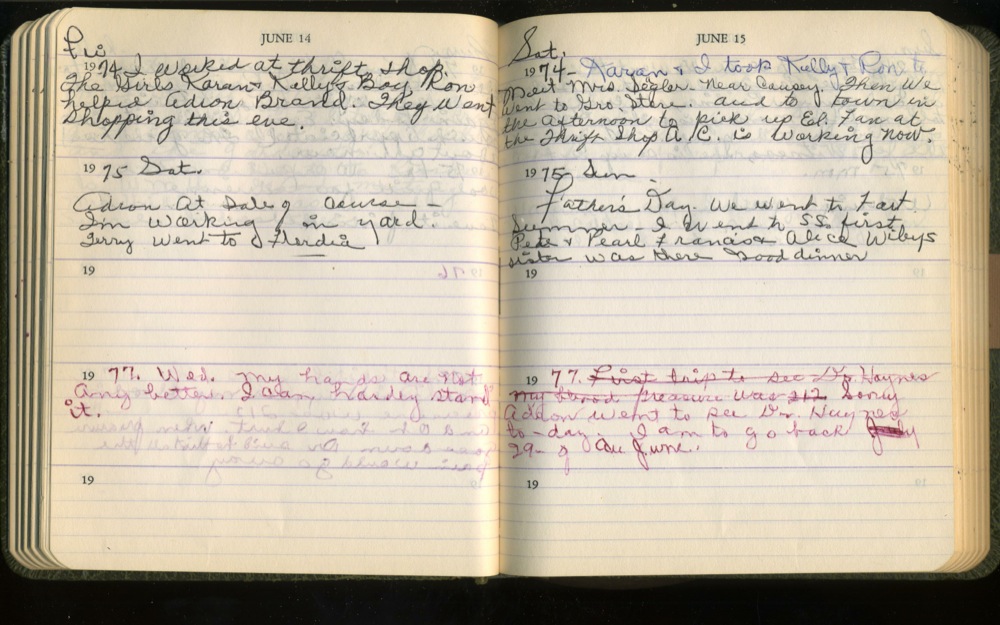 JUNE 14
Fri
1974 I worked at thrift shop.
The Girls Karan & Kelly's Boy Ron
helped Adron Brand. They went
Shopping this eve.
1975 Sat.
Adron At Sale of course -
I'm working in yard.
Jerry went to Flordia
19
1977. Wed. My hands are not
any better. I can hardley stand
it.
19
JUNE 15
Sat.
1974 - Karan & I took Kelly & Ron to
meet Mrs. Segler. near Causey. Then we
went to Gro. Store. and to town in
the afternoon to pick up Eh. Fan at
the Thrift Shop A.C. is working now.
1975 Sun.
Father's Day. We went to Fort
Sumner - I went to S.S. first.
Pete & Pearl Francis & Alice Wibys
sister was there good dinner
19
1977. First trip to see Dr. Haynes
my blood pressure was 212 Sorry
Adron went to see Dr. Haynes
to-day. I am to go back July
29- of June.
19